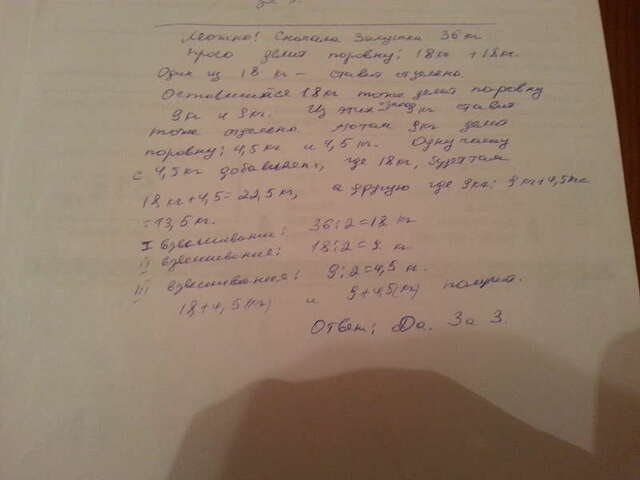 Можно! Сначала Золушка 36 кг
проса делит поровну: 18кг + 18кг.
Один из 18 кг - ставит отдельно.
Оставшийся 18кг тоже делит поровну
9кг и 9кг. Из этих 9кг ставит
тоже отдельно. Потом 9кг делит
поровну: 4,5 кг и 4,5 кг. Одну чашу
с 4,5 кг добавляем, где 18кг, будет там
18 кг+4,5=22,5кг, а другую где 9кг: 9 кг+4,5кг
=13,5 кг.
I взвешивание: 36:2=18 кг
II взвешивания: 18:2=9 кг
III взвешивания: 9:2=4,5 кг.
18+4,5(кг) и 9+4,5(кг)
Ответ: Да. За 3.